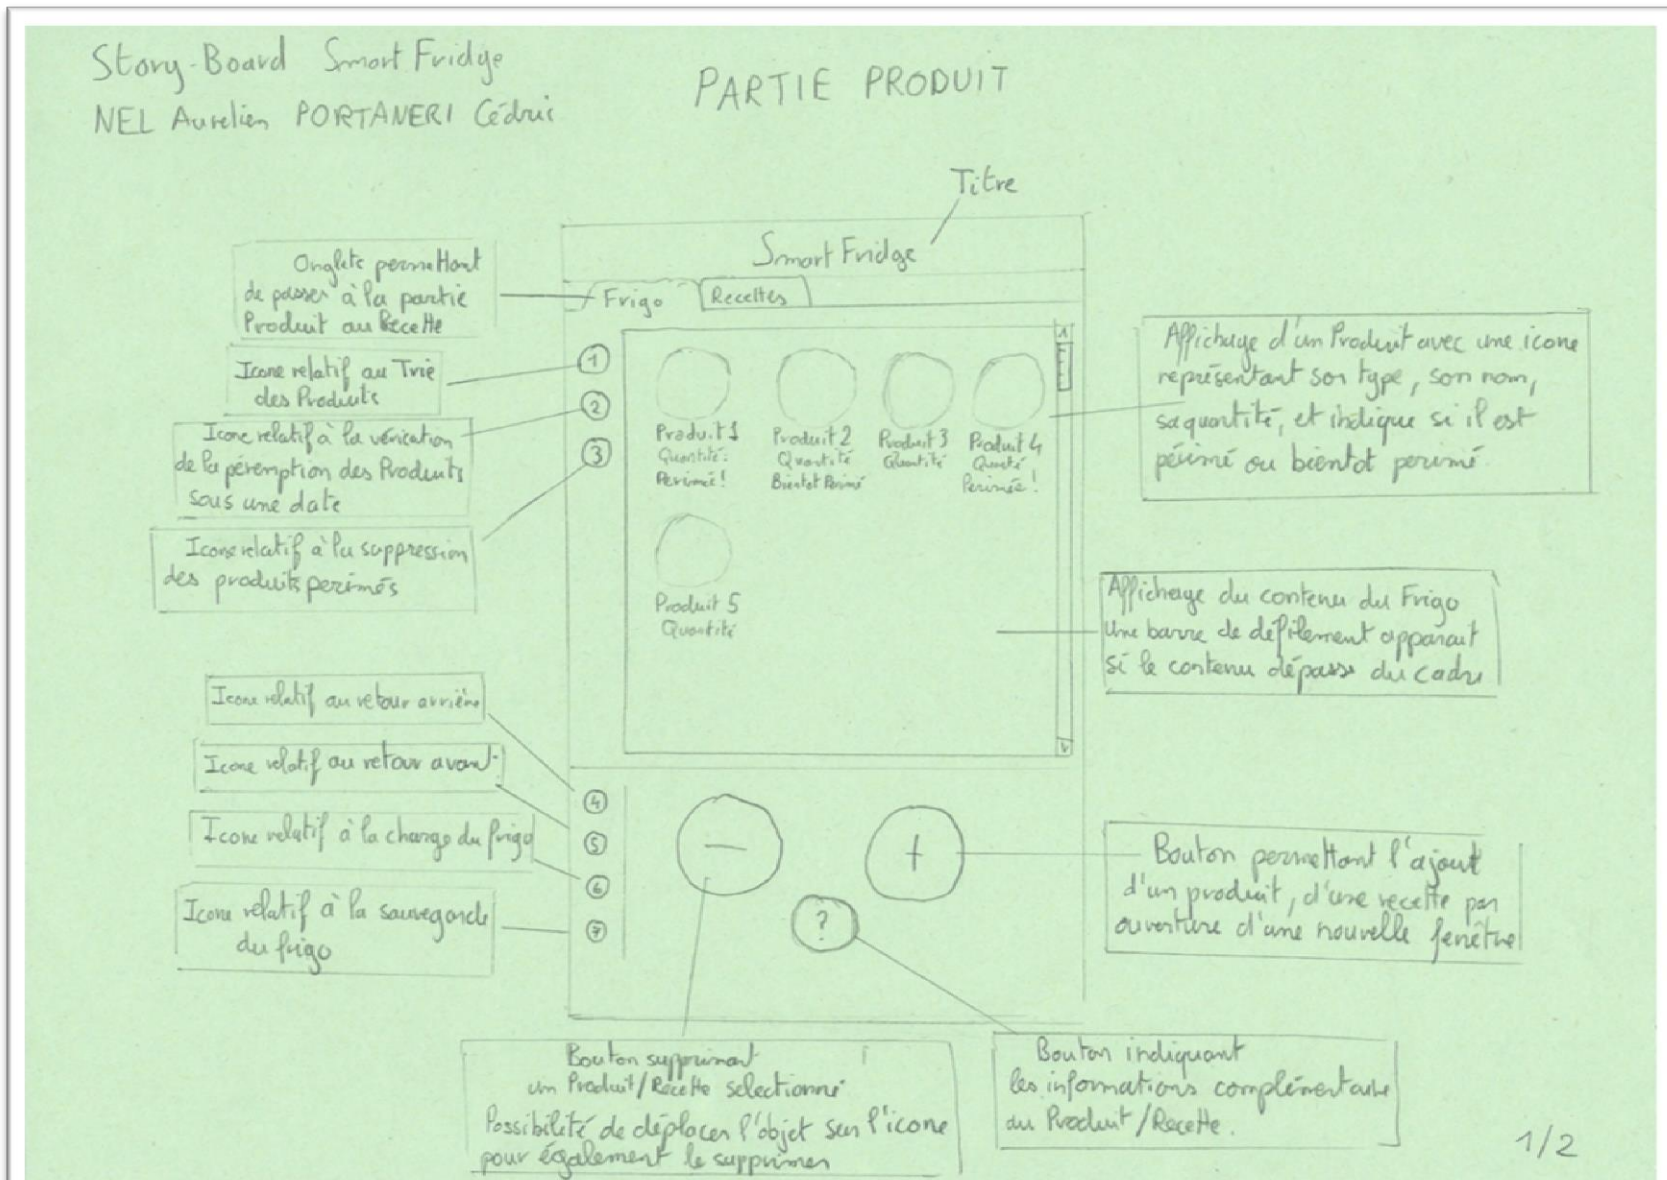 Story-Board Smart Fridge
NEL Aurelien PORTANERI Cédric
PARTIE PRODUIT
Titre
Smart Fridge
Frigo
Recettes
Onglets permettant
de passer à la partie
Produit ou Recette
Icone relatif au Trie
des Produits
Icone relatif à la vérication
de la péremption des Produits
sous une date
Icone relatif à la suppression
des produits perimés
1
2
3
Produit 1
Quantité:
Perimée!
Produit 2
Quantité
Bientot Perimé
Produit 3
Quantité
Produit 4
Perimée!
Produit 5
Quantité
Affichage d'un Produit avec une icone
représentant son type, son nom,
sa quantité, et indique si il est
périmé ou bientot perimé.
Affichage du contenu du Frigo
Une barre de défilement apparait
si le contenu dépasse du cadre
Icone relatif au retour arrière
Icone relatif au retour avant
Icone relatif à la charge du frigo
Icone relatif à la sauvegarde
du frigo
4
5
6
7
-
+
?
Bouton permettant l'ajout
d'un produit, d'une recette par
ouverture d'une nouvelle fenêtre
Bouton supprimant
un Produit/Recette selectionné
Possibilité de déplacer l'objet sur l'icone
pour également le supprimer
Bouton indiquant
les informations complémentaire
du Produit/Recette.
1/2